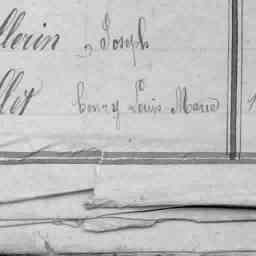 llerin, Joseph
llet Henry Louis Marie 1